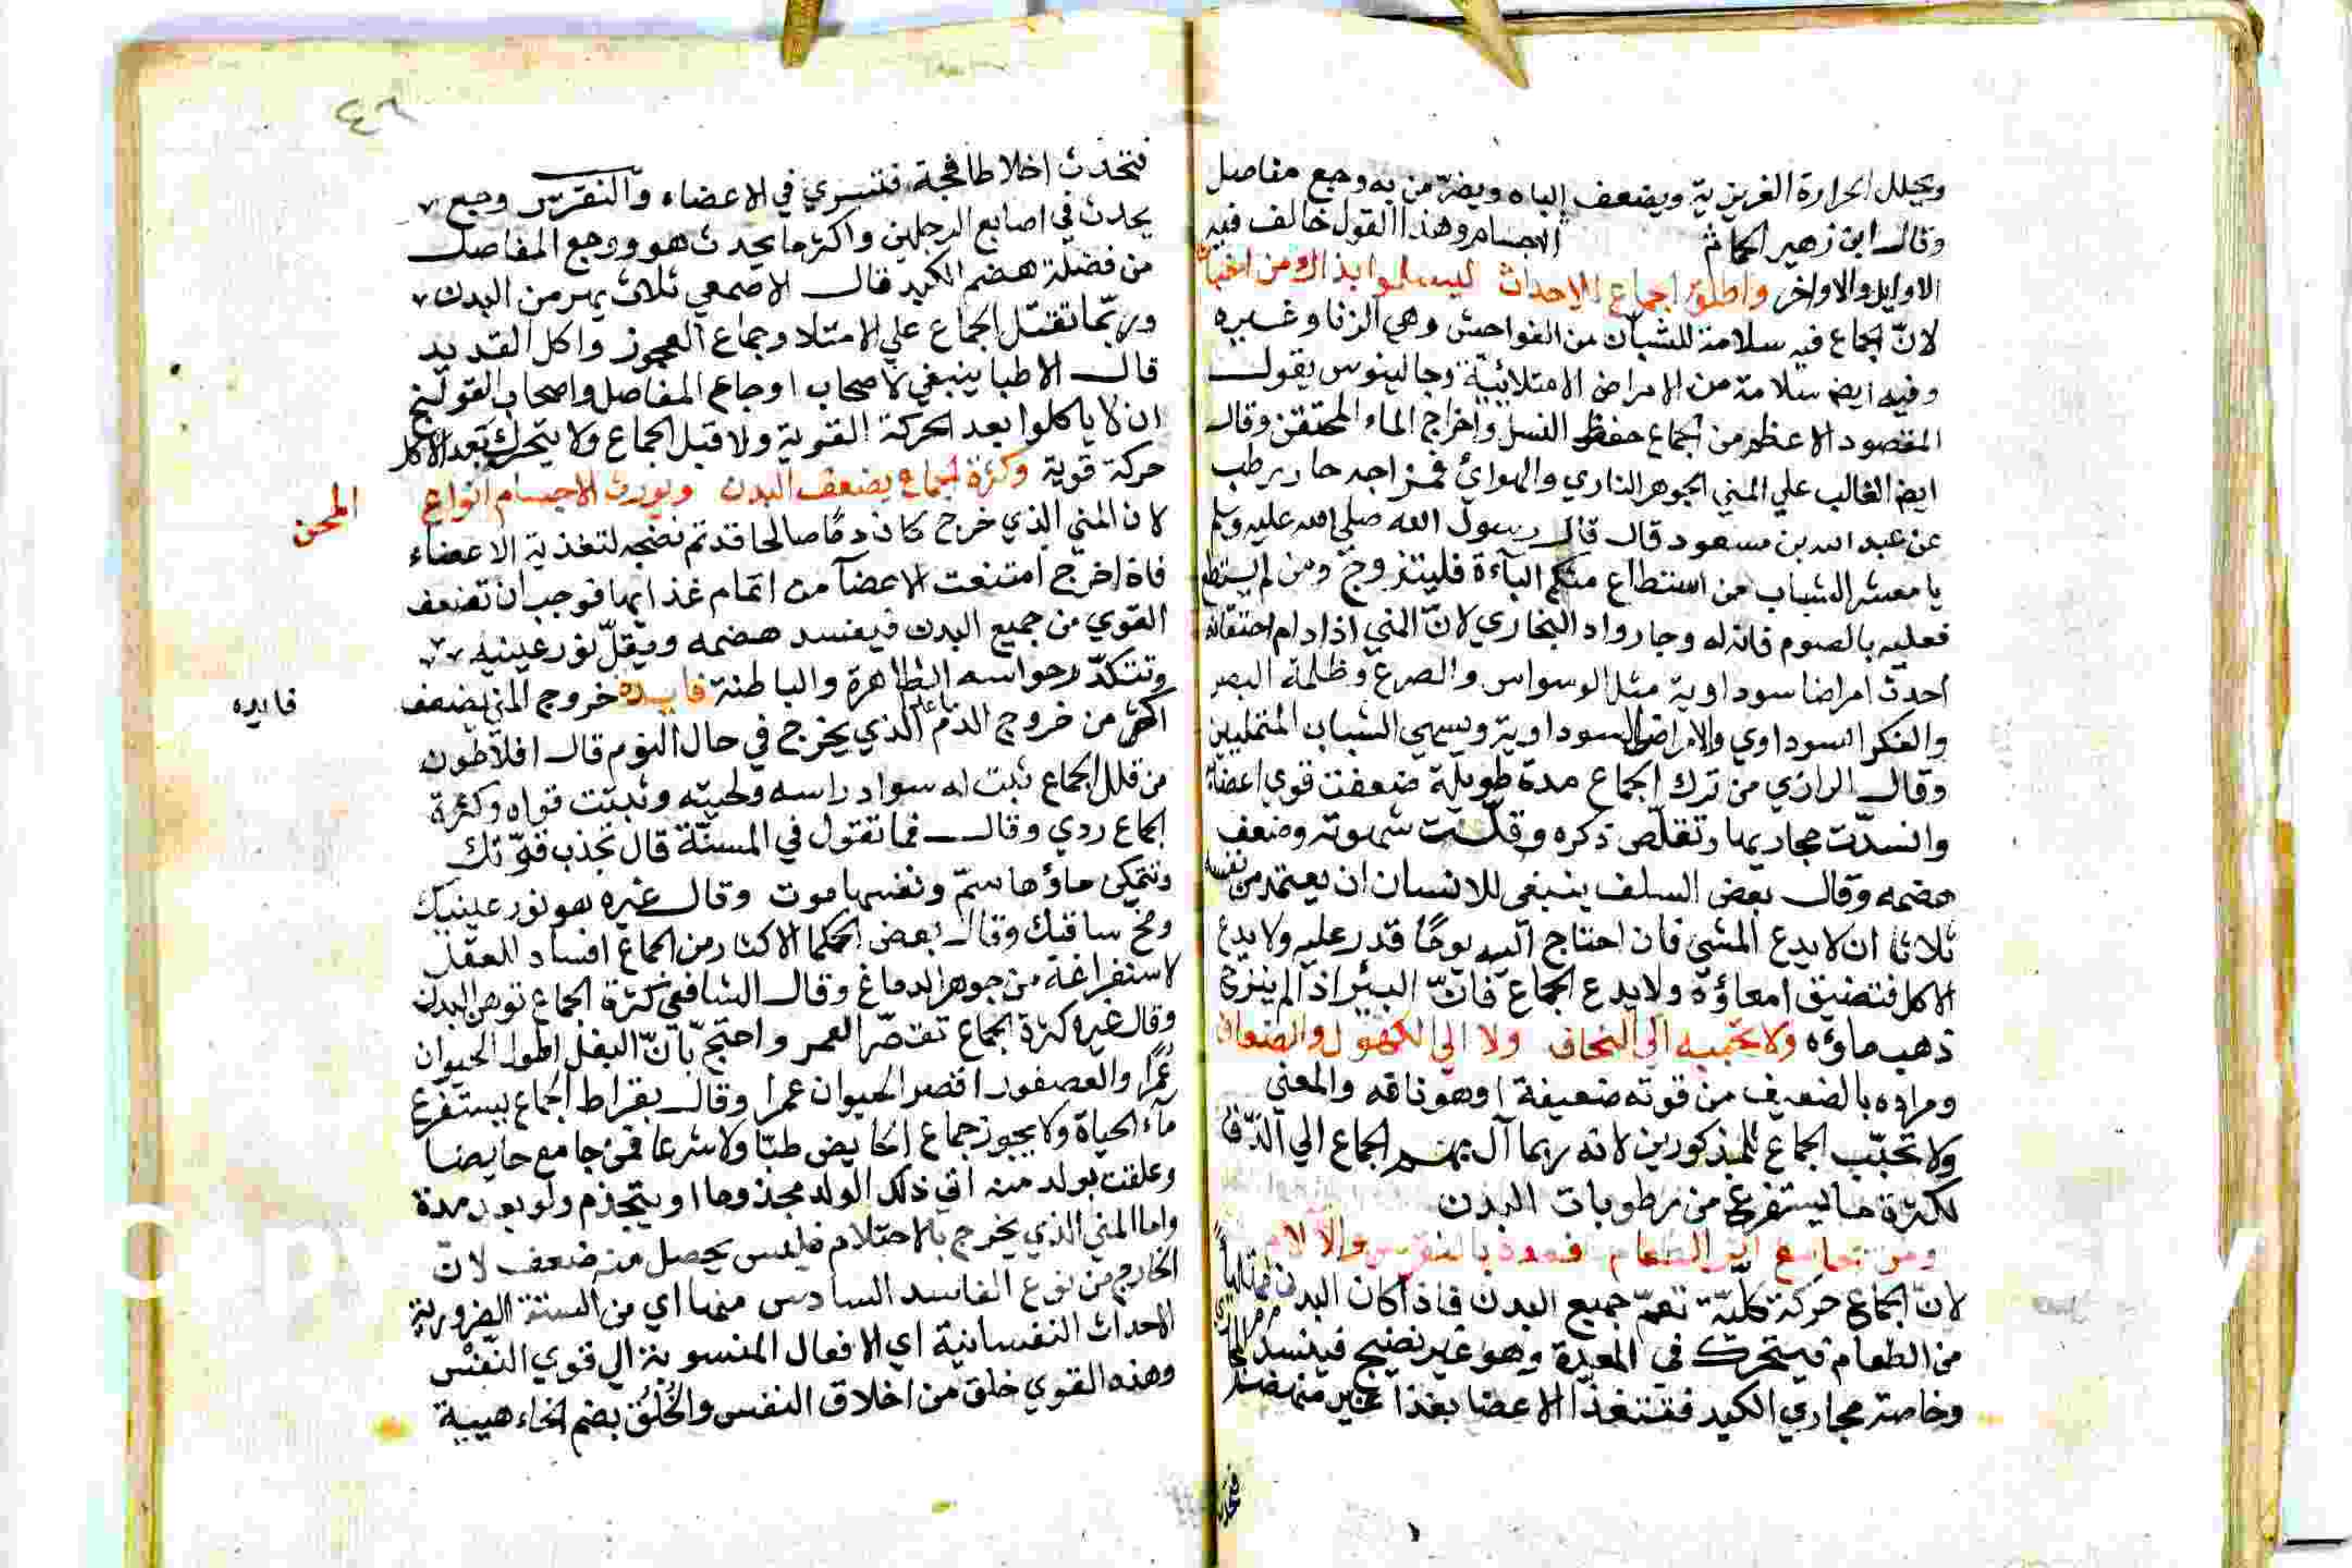 ويحلل الحرارة الغريزية ويضعف الباه ويضر من به وجع مفاصل
وقال ابن زهير الحكما ثم الاجسام وهذا القول خالف فيه
الاوايل والاواخر واطلق الجماع للاحداث ليسلموا بذاك من
لان الجماع فيه سلامة للشبان من الفواحش وهي الزنا وغيره
وفيه ايض سلامة من الامراض الامتلائية وجالينوس يقول
المقصود الاعظم من الجماع حفظ النسل واخراج الماء المحتقن وقال
ايض الغالب علي المني الجوهر الناري والهوائ فمزاجه حار رطب
عن عبد الله بن مسعود قال قال رسول الله صلي الله عليه وسلم
يا معشر الشباب من استطاع منكم الباءة فليتزوج ومن لم يستطع
فعليه بالصوم فانه له وجا رواه البخاري لان المني اذا دام احتقانه
احدث امراضا سوداوية مثل الوسواس والصرع وظلمة البصر
والفكر السوداوي والامراض السوداوية ويسمي الشباب المتمليين
وقال الرازي من ترك الجماع مدة طويلة ضعفت قوي اعضائه
وانسدت مجاريها وتقلص ذكره وقلت شهوته وضعف
هضمه وقال بعض السلف ينبغي للانسان ان يعتمد من نفسه
ثلاثا ان لا يدع المشي فان احتاج اليه يومًا قدر عليه ولا يدع
الاكل فتضيق امعاؤه ولا يدع الجماع فان البئر اذا لم ينزح
ذهب ماؤه ولا تحببه الي النحاف ولا الي الكهول والضعاف
ومراده بالضعيف من قوته ضعيفة او هو ناقه والمعني
ولا تحبب الجماع للمذكورين لانه ربما آل بهم الجماع الي الدق
لكثرة ما يستفرغ من رطوبات البدن
ومن يجامع اثر الطعام فعوذ بالنقرس والآلام
لان الجماع حركة كلية تعم جميع البدن فاذا كان البدن ممتليا
من الطعام فيتحرك في المعدة وهو غير نضيج فيفسد
وخاصة مجاري الكبد فتتغذا الاعضا بغذا غير منهضم
فتحدث
٤٦
فتحدث اخلاطا فجة فتسري في الاعضاء والنقرس وجع
يحدث في اصابع الرجلين واكثر ما يحدث هو ووجع المفاصل
من فضلة هضم الكبد قال الاصمعي ثلاث يهرمن البدن
وربما تقتل الجماع علي الامتلا وجماع العجوز واكل القديد
قال الاطبا ينبغي لاصحاب اوجاع المفاصل واصحاب القولنج
ان لا ياكلوا بعد الحركة القوية ولا قبل الجماع ولا يتحرك بعد الاكل
حركة قوية وكثرة الجماع يضعف البدن ويورث الاجسام انواع المحن
لان المني الذي خرج كان دمًا صالحا قد تم نضجه لتغذية الاعضاء
فاذا خرج امتنعت الاعضآ من اتمام غذايها فوجب ان تضعف
القوي من جميع البدن فيفسد هضمه ويقل نور عينيه
وتتكدر حواسه الظاهرة والباطنة فايدة خروج المني يضعف
فايده
اكثر من خروج الدم الذي يخرج في حال النوم قال افلاطون
من قلل الجماع ثبت له سواد راسه ولحيته وثبتت قواه وكثرة
الجماع ردي وقال فما تقول في المسنة قال تجذب قوتك
ماؤها سم ونفسها موت وقال غيره هو نور عينيك
ومخ ساقيك وقال بعض الحكما الاكثار من الجماع افساد العقل
لاستفراغه من جوهر الدماغ وقال الشافعي كثرة الجماع توهن البدن
وقال غيره كثرة الجماع تقصر العمر واحتج بان البغل اطول الحيوان
عمرًا والعصفور اقصر الحيوان عمرا وقال بقراط الجماع يستفرغ
مآء الحياة ولا يجوز جماع الحايض طبّا ولا شرعا فمن جامع حايضا
وعلقت بولد منه اتي ذلك الولد مجذوما او يتجذم ولو بعد مدة
واما المني الذي يخرج بالاحتلام فليس يحصل منه ضعف لان
الخارج من نوع الفاسد السادس منها اي من الستة الضرورية
الاحداث النفسانية اي الافعال المنسوبة الي قوي النفس
وهذه القوي خلق من اخلاق النفس والخُلُق بضم الخاء هيية